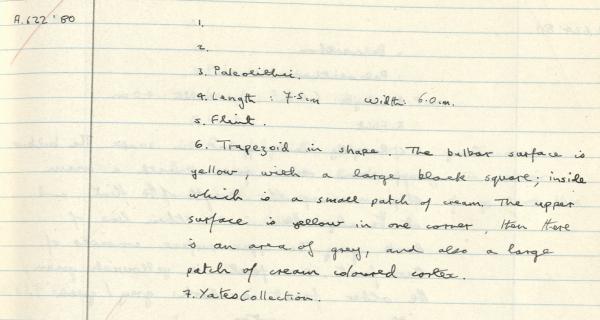 A.622'80
1.
2.
3. Paleolithic.
4. Length : 7.5cm Width: 6.0cm.
5. Flint.
6. Trapezoid in shape. The bulbar surface is
yellow, with a large black square; inside
which is a small patch of cream. The upper
surface is yellow in one corner, then there
is an area of grey, and also a large
patch of cream coloured cortex.
7. Yates Collection.